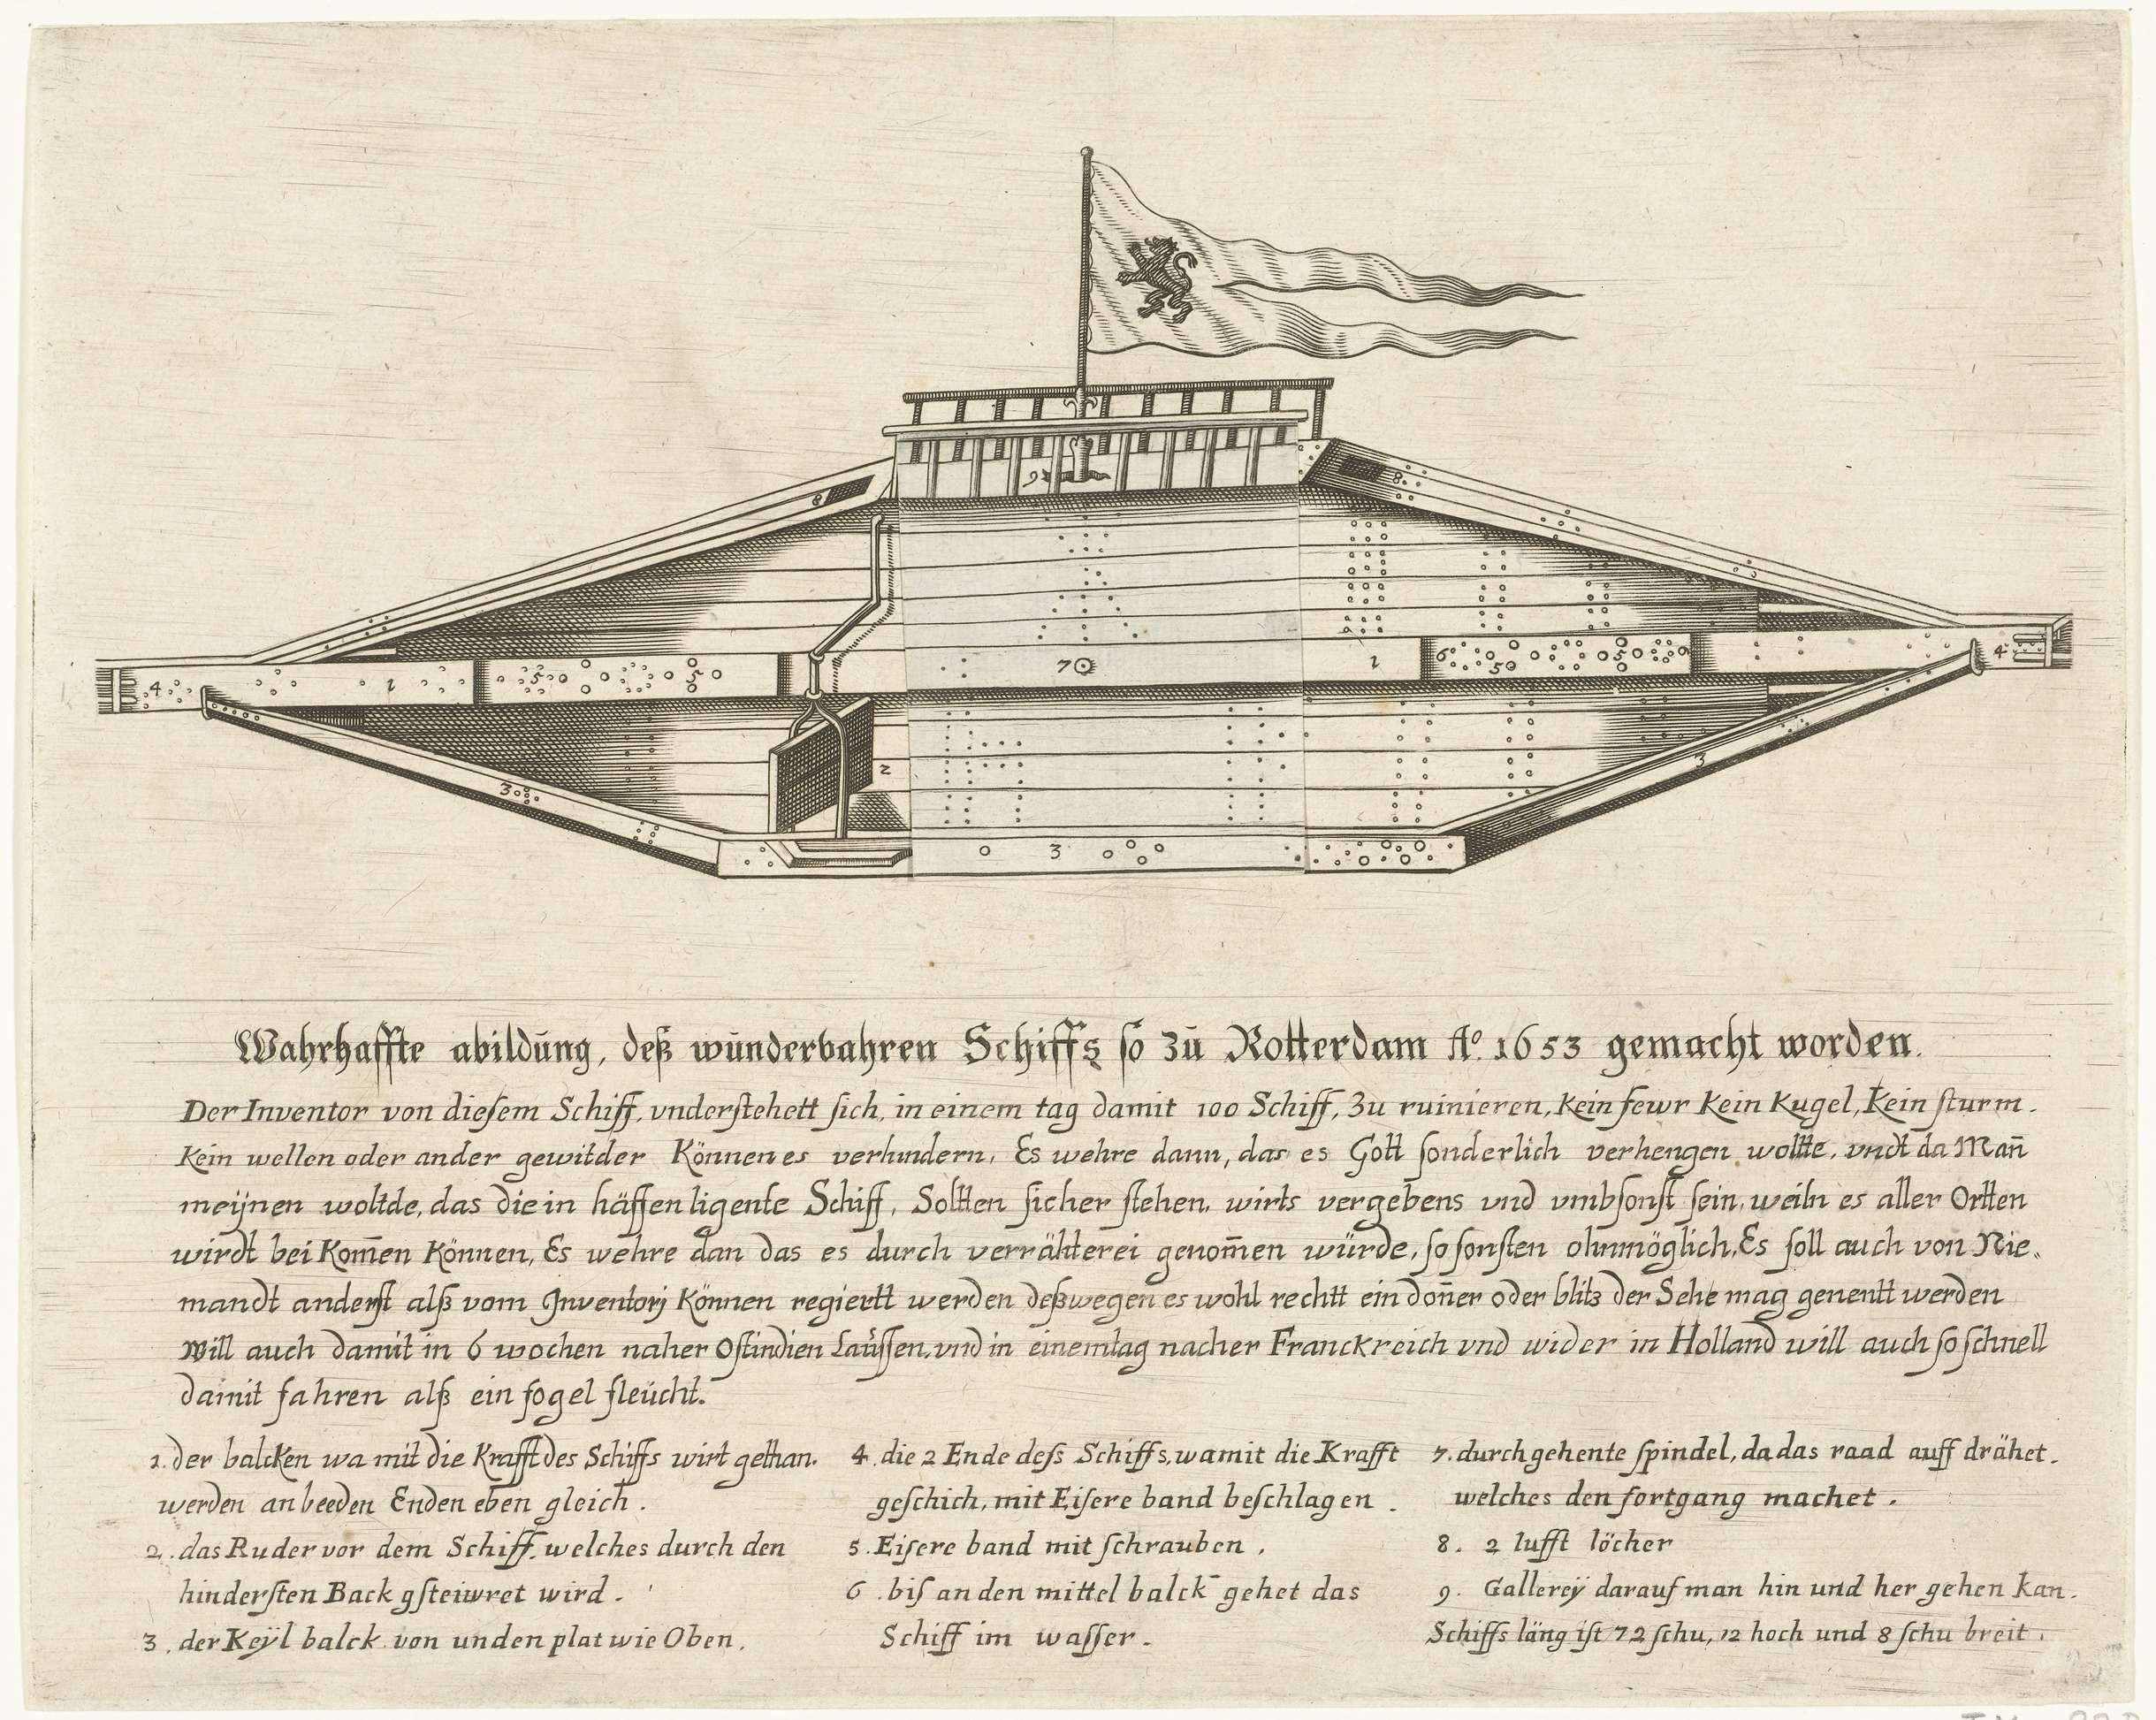 4
1
5
5
3
8
2
9
7
3
8
1
6
5
5
4
3
Wahrhaffte abildũng, deß wũnderbahren Schiffs so zũ Rotterdam Aº. 1653 gemacht worden.
Der Inventor von diesem Schiff, vnderstehett sich, in einem tag damit 100 Schiff, zu ruinieren, kein fewr kein kugel, kein sturm.
kein wellen oder ander gewitder können es verhindern, Es wehre dann, das es Gott sonderlich verhengen woltte, vndt da Man̄
meÿnen woltde, das die in häffen ligente Schiff, Soltten sicher stehen, wirts vergebens vnd vmbsonst sein, weiln es aller Ortten
wirdt bei kom̄en können, Es wehre dan das es durch verrähterei genom̄en würde, so sonsten ohnmöglich, Es soll auch von Nie„
mandt anderst alß vom Inventorj können regiertt werden deßwegen es wohl rechtt ein don̄er oder blitz der Sehe mag genentt werden
Will auch damit in 6 wochen naher Ostindien Laüssen, vnd in einem tag nacher Franckreich vnd wider in Holland will auch so schnell
damit fahren alß ein fogel fleücht.
1. der balcken wa mit die Krafft des Schiffs wirt gethan.
werden an beeden Enden eben gleich.
2. das Ruder vor dem Schiff, welches durch den
hindersten Back gsteiwret wird.
3. der Keÿl balck von unden plat wie Oben.
4. die 2 Ende dess Schiffs, wamit die Krafft
geschich, mit Eisere band beschlagen.
5. Eisere band mit schrauben.
6. biß an den mittel balck gehet das
Schiff im wasser.
7. durchgehente spindel, da das raad auff drähet.
welches den fortgang machet.
8. 2 lufft löcher
9. Gallereÿ darauf man hin und her gehen kan.
Schiffs läng ist 72 schu, 12 hoch und 8 schu breit.